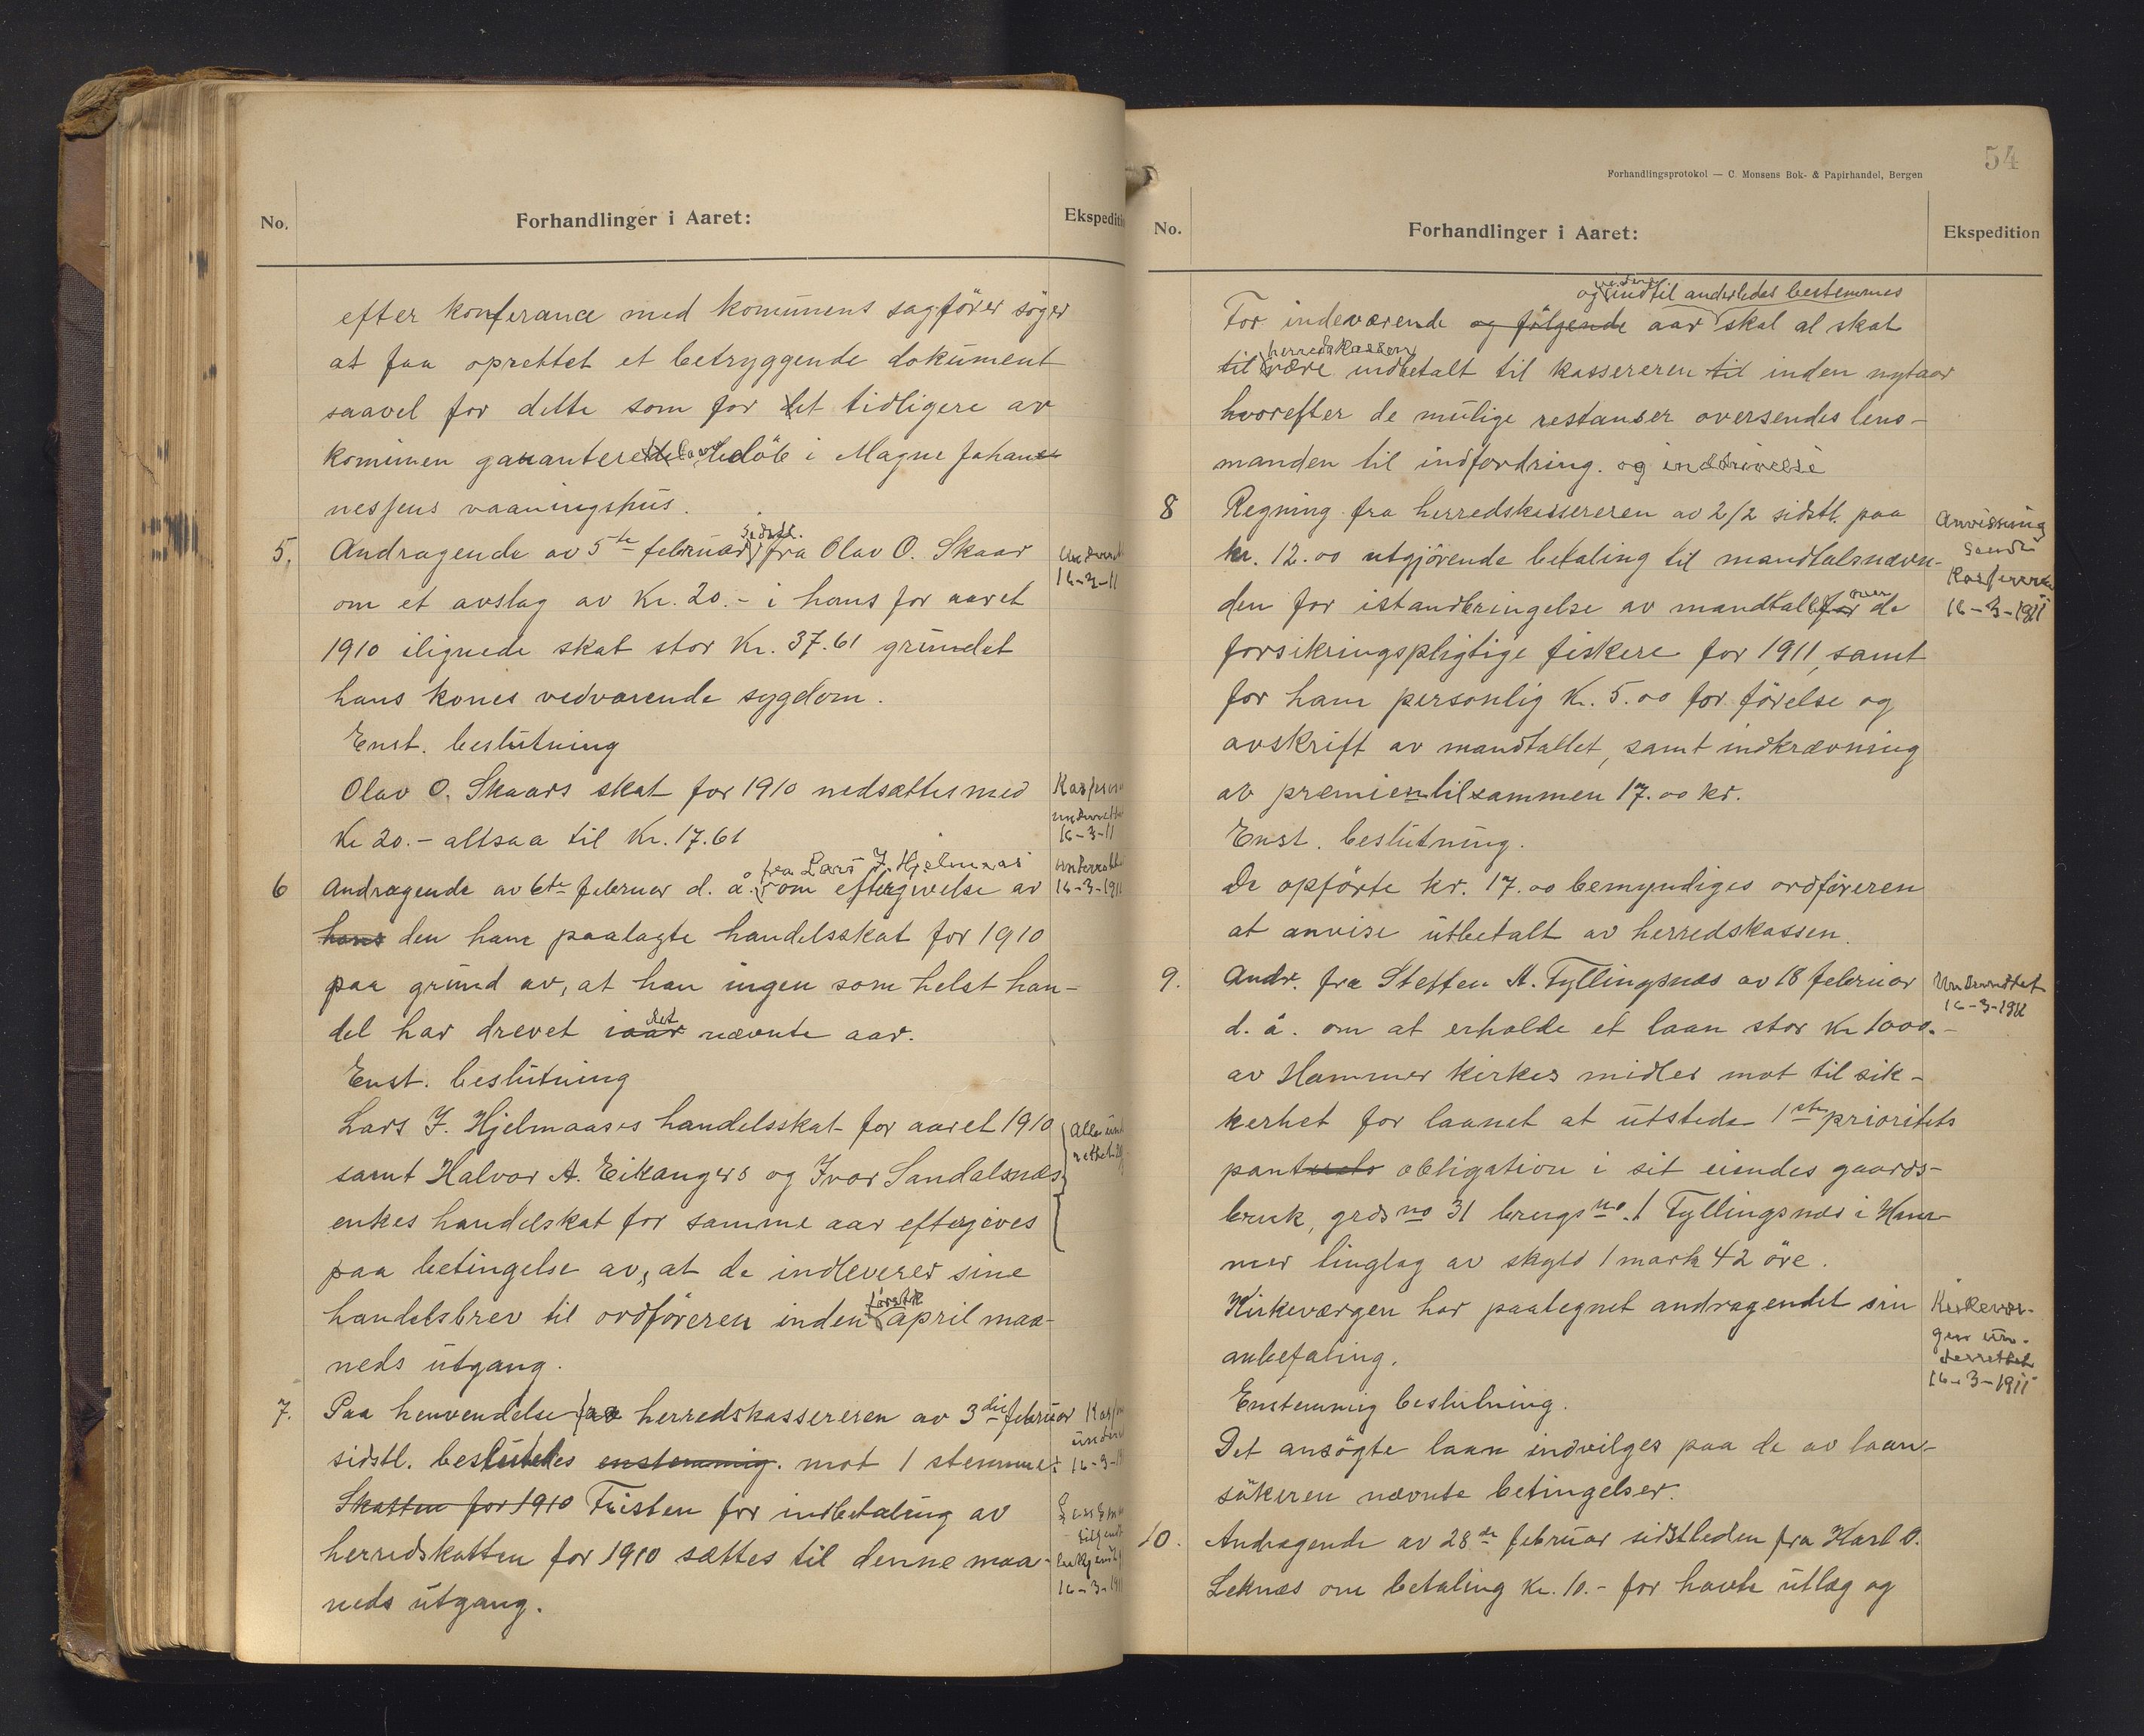 No.
Forhandlinger i Aaret:
Ekspediti
efter konferance med komunens sagfører søger
at faa oprettet et betryggende dokument
saavel for dette som for det tidligere av
komunen garanterede beløb i Magne Johan
nessens vaaningshus.
5. Andragende av 5te februar sidstl. fra Olav O. Skaar
16-3-11
om et avslag av Kr. 20.- i hans for aaret
1910 ilignede skat stor Kr. 37.61 grundet
hans kones vedvarende sygdom.
Enst. beslutning
Olav O. Skaars skat for 1910 nedsættes med
Kr 20.- altsaa til Kr. 17.61
16-3-11
fra Lars J. Hjelmaas
6 Andragende av 6te februar d. å. om eftergivelse av
16-3-1911
hans den ham paalagte handelsskat for 1910
paa grund av, at han ingen som helst han-
del har drevet iaar det nævnte aar.
Enst. beslutning
Lars J. Hjelmaases handelsskat for aaret 1910
samt Halvor A. Eikangers og Ivar Sandalsnæs
enkes handelskat for samme aar eftergives
paa betingelse av, at de indleverer sine
handelsbrev til ordføreren inden førstk april maa-
neds utgang.
7. Paa henvendelse fra herredskassereren av 3die februar
sidstl. beslutedes enstemmig. mot 1 stemme:
16-3-11
Skatten for 1910 Fristen for indbetaling av
herredskatten for 1910 sættes til denne maa-
neds utgang.
16-3-1911
54
Forhandlingsprotokol — C. Monsens Bok- & Papirhandel, Bergen
No.
Forhandlinger i Aaret:
Ekspedition
og videre indtil anderledes bestemmes
For indeværende og følgende aar skal al skat
til herredskassen være indbetalt til kassereren til inden nytaar
hvorefter de mulige restanser oversendes lens-
manden til indfordring. og inddrivelse
8 Regning fra herredskassereren av 2/2 sidstl. paa
Anvisning
kr. 12.00 utgjørende betaling til mandtalsnævn-
sendt
Kassereren
den for istandbringelse av mandtal for over de
16-3-1911
forsikringspligtige fiskere for 1911, samt
for ham personlig Kr. 5.00 for førelse og
avskrift av mandtallet, samt indkrævning
av premien tilsammen 17.00 kr.
Enst. beslutning.
De opførte kr. 17.00 bemyndiges ordføreren
at anvise utbetalt av herredskassen.
9. Andr. fra Steffen A. Tyllingsnæs av 18 februar
Underrettet
16-3-1911
d. å. om at erholde et laan stor Kr 1000.-
av Hammer kirkes midler mot til sik-
kerhet for laanet at utstede 1ste prioritets
pant obligation i sit eiendes gaards-
bruk, grds no 31 brugs no. 1 Tyllingsnæs i Ham-
mer tinglag av skyld 1 mark 42 øre.
Kirkeværgen har paategnet andragendet sin
Kirkevær-
gen un-
derrettet
16-3-1911
anbefaling.
Enstemmig beslutning.
Det ansøgte laan indvilges paa de av laan-
søkeren nævnte betingelser.
10. Andragende av 28de februar sidstleden fra Karl O.
Leknæs om betaling Kr. 10.- for havte utlæg og